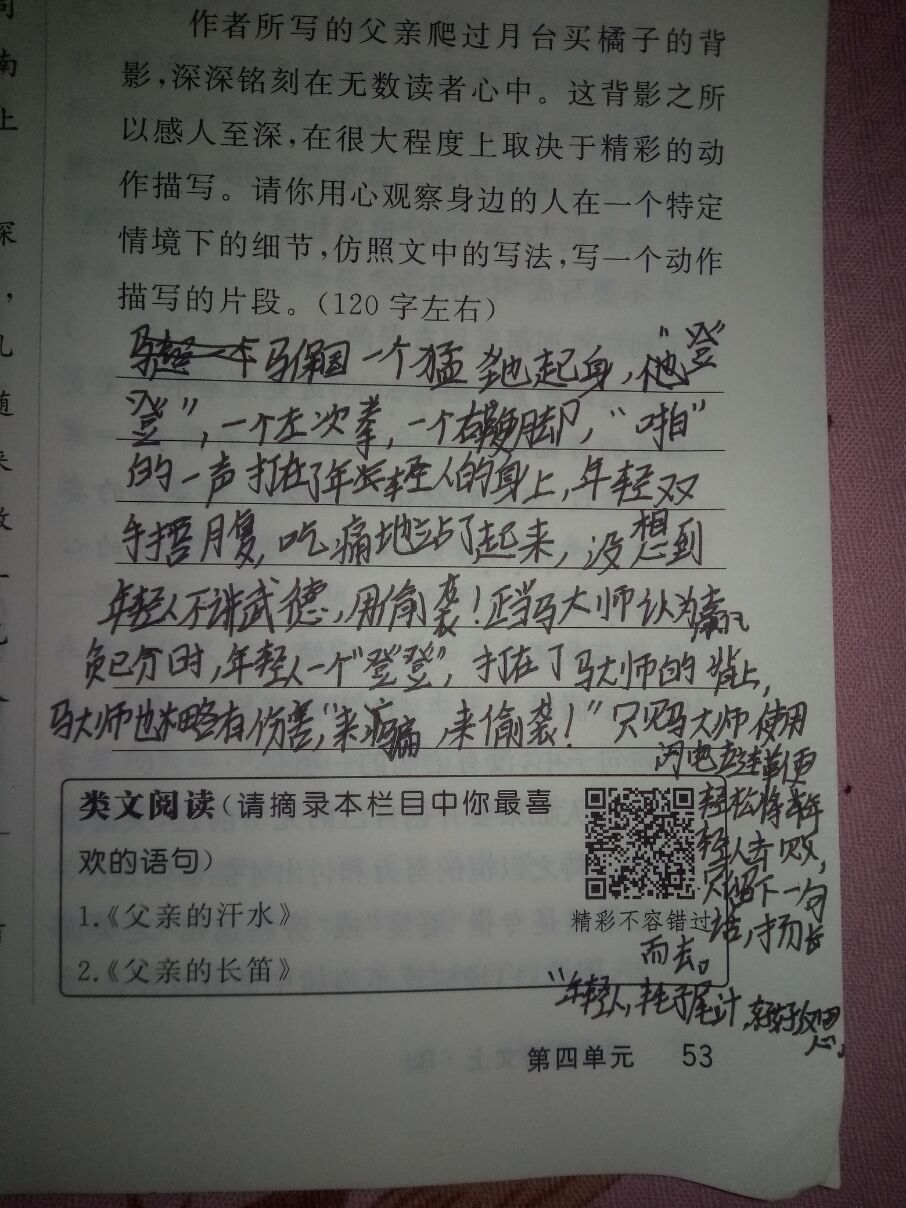 作者所写的父亲爬过月台买橘子的背
影,深深铭刻在无数读者心中。这背影之所
以感人至深,在很大程度上取决于精彩的动
作描写。请你用心观察身边的人在一个特定
情境下的细节,仿照文中的写法,写一个动作
描写的片段。(120字左右)
马保国一个猛地起身,他“登
登”,一个左次拳,一个右鞭脚,“啪”
的一声打在了年轻人的身上,年轻双
手捂腹,吃痛地站了起来,没想到
年轻人不讲武德,用偷袭!正当马大师认为赢
负已分时,年轻人一个“登登”,打在了马大师的背上,
马大师也略有伤害,“来骗,来偷袭!”只见马大师使用
闪电连鞭便
轻松将年
轻人击败,
只留下一句
话,扬长
而去。
“年轻人,耗子尾汁,好好反思。
类文阅读(请摘录本栏目中你最喜
欢的语句)
1.《父亲的汗水》
2.《父亲的长笛》
精彩不容错过
第四单元 53